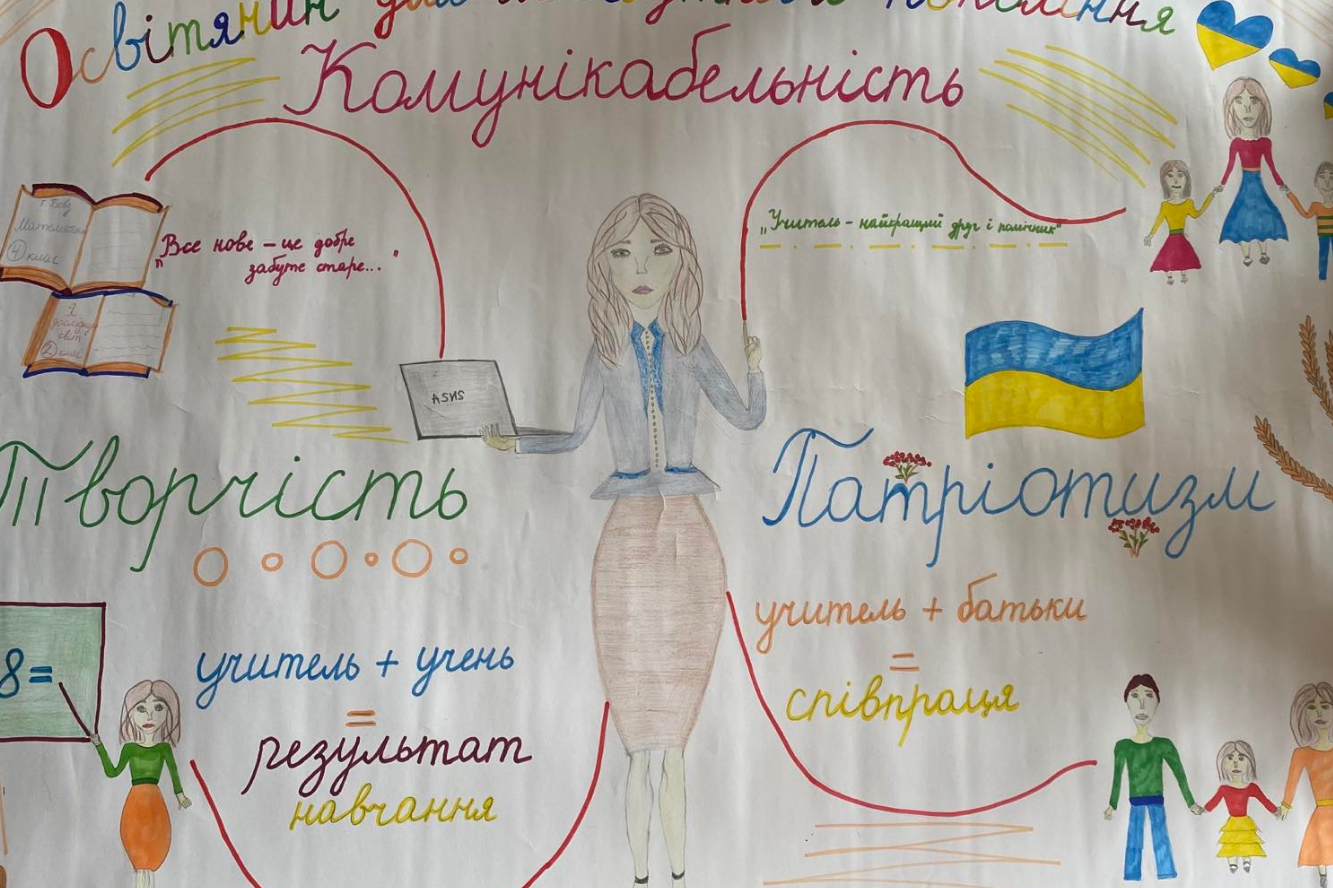 Освітянин для майбутнього покоління
Комунікабельність
Математика
4 клас
"Все нове – це добре
забуте старе..."
„Учитель - найкращий друг і помічник"
Я
досліджую
світ
2 клас
ASUS
Творчість
Патріотизм
8 =
учитель + учень
=
результат
навчання
учитель + батьки
=
співпраця